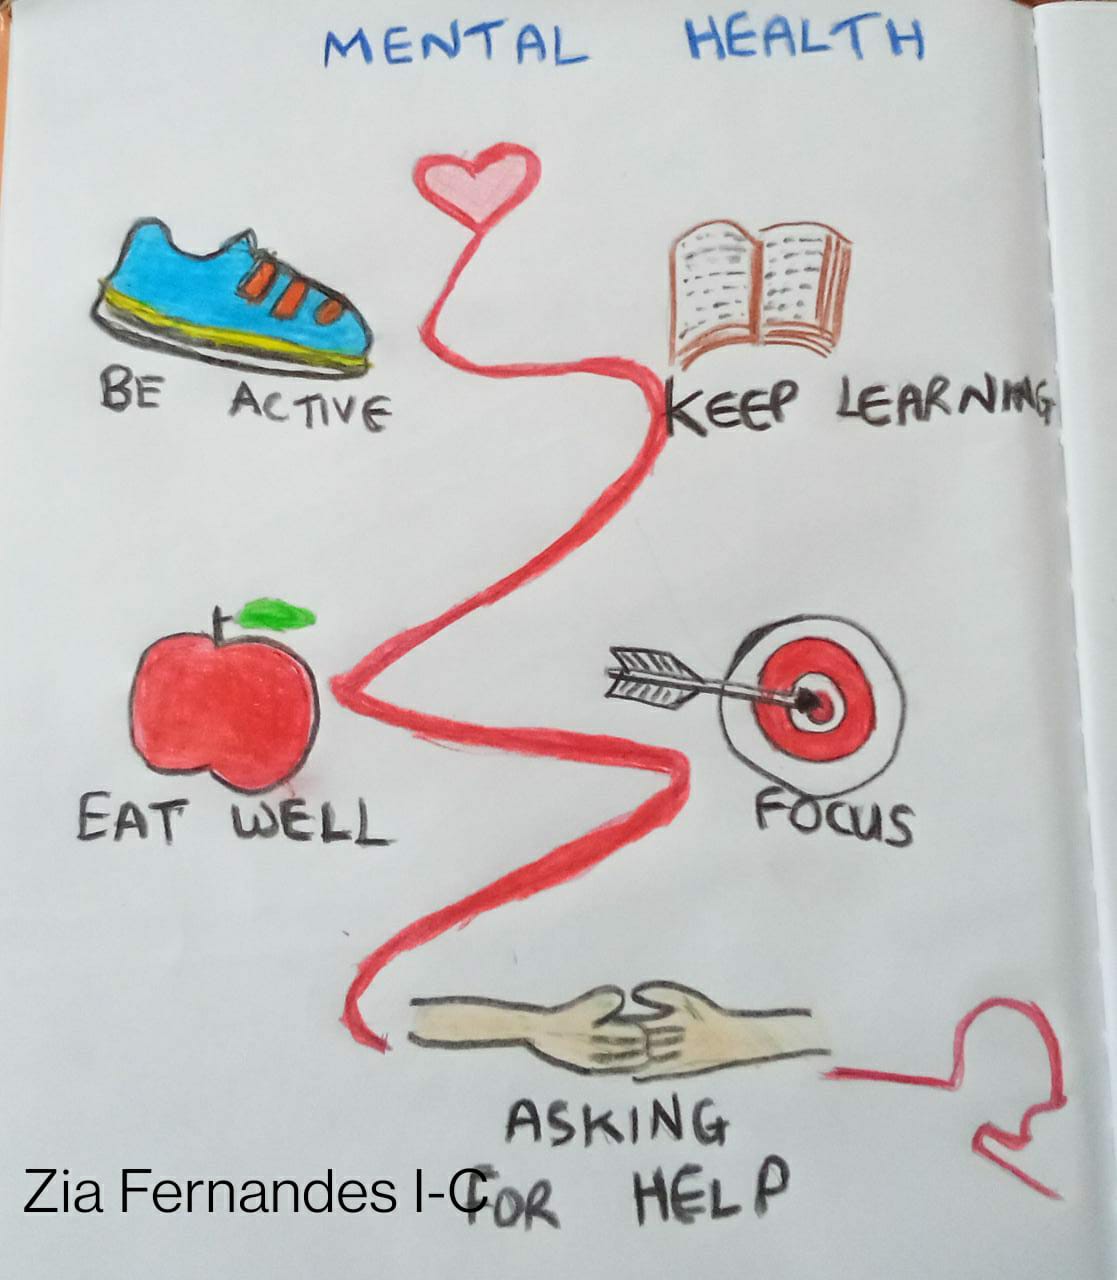 MENTAL HEALTH
BE ACTIVE
KEEP LEARNING
EAT WELL
FOCUS
ASKING
FOR HELP
Zia Fernandes I-C